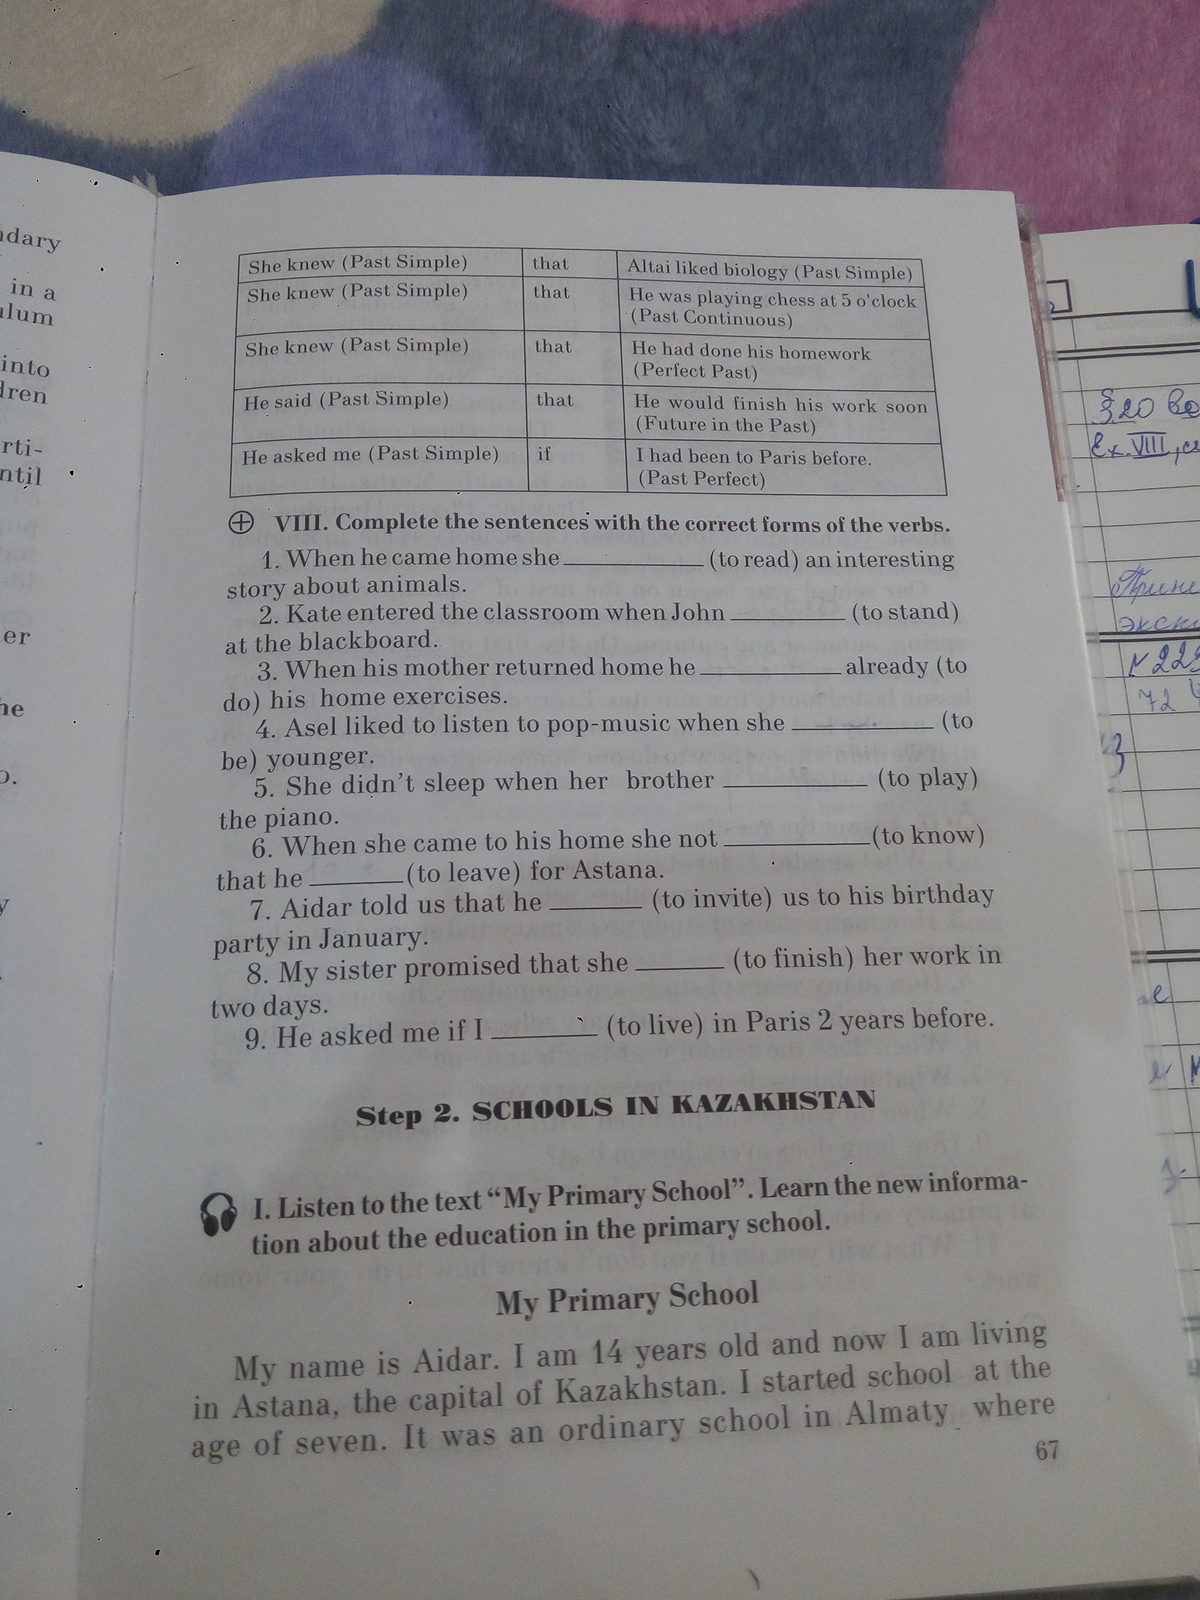 ndary
in a
ulum
into
dren
rti-
ntil
er
he
o.
y
She knew (Past Simple) that Altai liked biology (Past Simple)
She knew (Past Simple) that He was playing chess at 5 o'clock
(Past Continuous)
She knew (Past Simple) that He had done his homework
(Perfect Past)
He said (Past Simple) that He would finish his work soon
(Future in the Past)
He asked me (Past Simple) if I had been to Paris before.
(Past Perfect)
VIII. Complete the sentences with the correct forms of the verbs.
1. When he came home she ________ (to read) an interesting
story about animals.
2. Kate entered the classroom when John ________ (to stand)
at the blackboard.
3. When his mother returned home he ________ already (to
do) his home exercises.
4. Asel liked to listen to pop-music when she ________ (to
be) younger.
5. She didn't sleep when her brother ________ (to play)
the piano.
6. When she came to his home she not ________ (to know)
that he ________ (to leave) for Astana.
7. Aidar told us that he ________ (to invite) us to his birthday
party in January.
8. My sister promised that she ________ (to finish) her work in
two days.
9. He asked me if I ________ (to live) in Paris 2 years before.
Step 2. SCHOOLS IN KAZAKHSTAN
I. Listen to the text “My Primary School”. Learn the new informa-
tion about the education in the primary school.
My Primary School
My name is Aidar. I am 14 years old and now I am living
in Astana, the capital of Kazakhstan. I started school at the
age of seven. It was an ordinary school in Almaty where
67
§20
Ex. VIII,
72